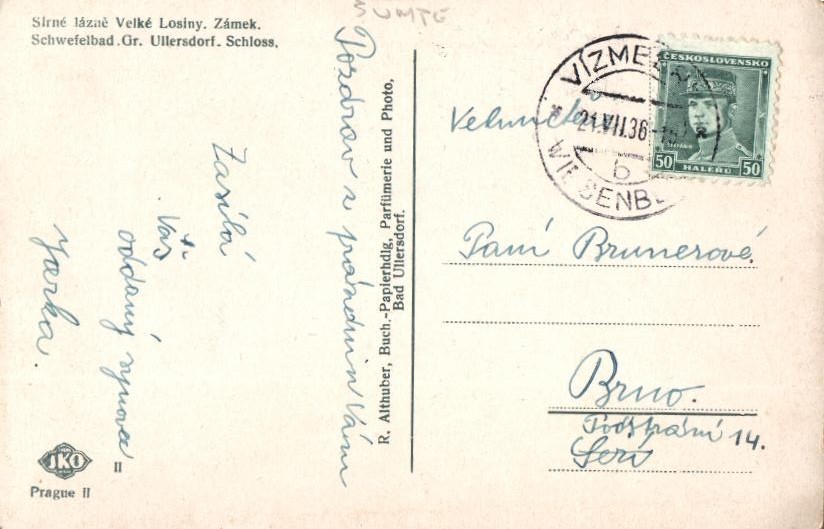 ŠUMPE
Sirné lázně Velké Losiny. Zámek.
Schwefelbad Gr. Ullersdorf. Schloss.
Pozdrav z prázdnin Vám
Zasílá
Váš
oddaný
Jarka.
R. Althuber, Buch.-Papierhdlg, Parfümerie und Photo,
Bad Ullersdorf.
JKO
II
Prague II
VÍZMBERK
21.VII.36
b
WIESENBERG
ČESKOSLOVENSKO
ŠTEFÁNIK
50 HALÉŘŮ 50
Paní Brunerové.
Brno.
14.